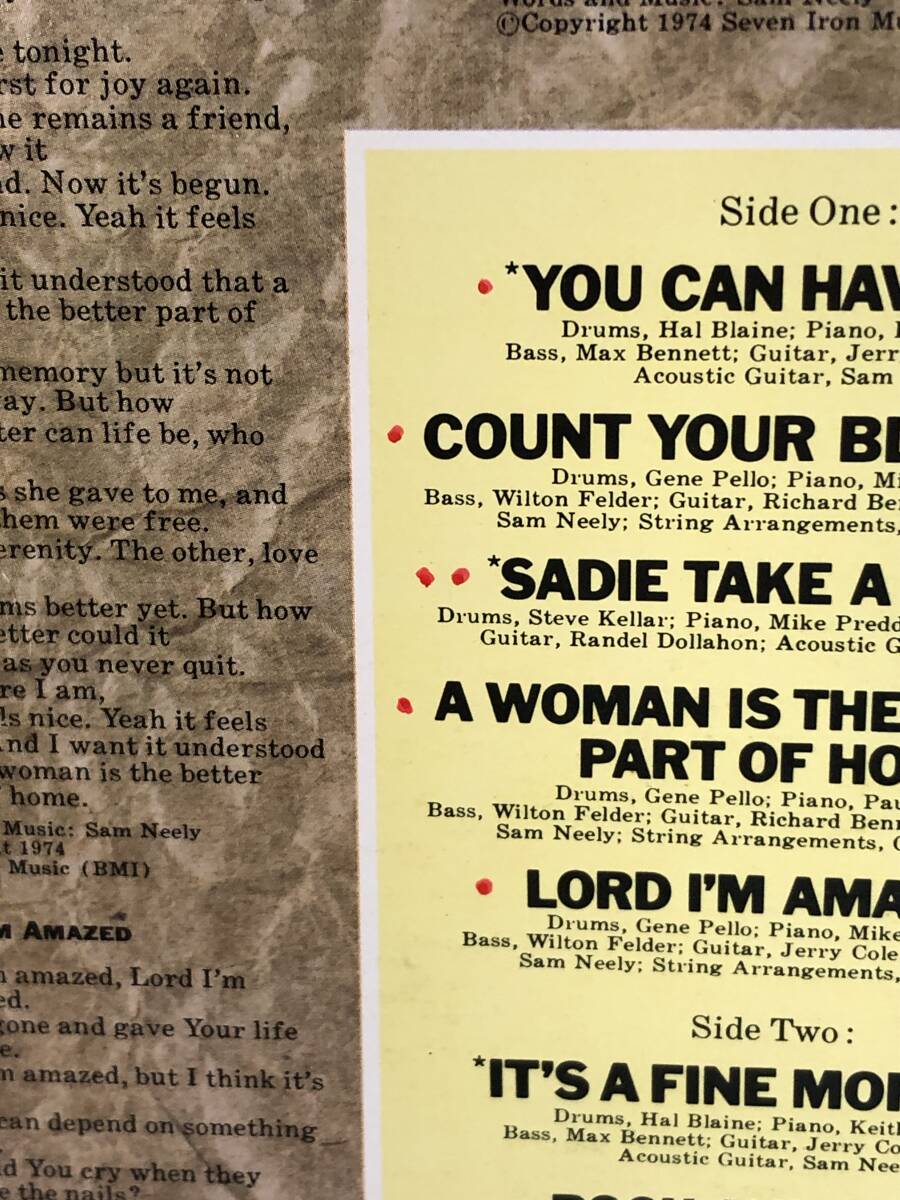 Words and Music: Sam Neely
©Copyright 1974 Seven Iron
tonight.
for joy again.
remains a friend,
it
Now it's begun.
nice. Yeah it feels
it understood that a
the better part of
memory but it's not
But how
can life be, who
she gave to me, and
them were free.
The other, love
better yet. But how
could it
as you never quit.
I am,
nice. Yeah it feels
And I want it understood
woman is the better
home.
Music: Sam Neely
1974
Music (BMI)
AMAZED
amazed, Lord I'm
gone and gave Your life
amazed, but I think it's
can depend on something
You cry when they
the nails?
Side One:
*YOU CAN
Drums, Hal Blaine; Piano,
Bass, Max Bennett; Guitar, Jerry
Acoustic Guitar, Sam
COUNT YOUR
Drums, Gene Pello; Piano,
Bass, Wilton Felder; Guitar, Richard
Sam Neely; String Arrangements,
*SADIE TAKE A
Drums, Steve Kellar; Piano, Mike
Guitar, Randel Dollahon; Acoustic
A WOMAN IS THE
PART OF
Drums, Gene Pello; Piano,
Bass, Wilton Felder; Guitar, Richard
Sam Neely; String Arrangements,
LORD I'M
Drums, Gene Pello; Piano, Mike
Bass, Wilton Felder; Guitar, Jerry Cole
Sam Neely; String Arrangements,
Side Two:
*IT'S A FINE
Drums, Hal Blaine; Piano,
Bass, Max Bennett; Guitar, Jerry
Acoustic Guitar, Sam